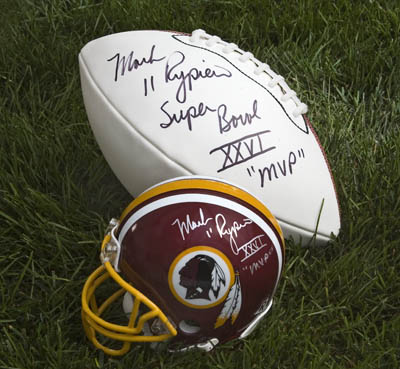 Mark
11 Rypien
Super Bowl
XXVI
"MVP"
Mark
11 Rypien
XXVI
"MVP"